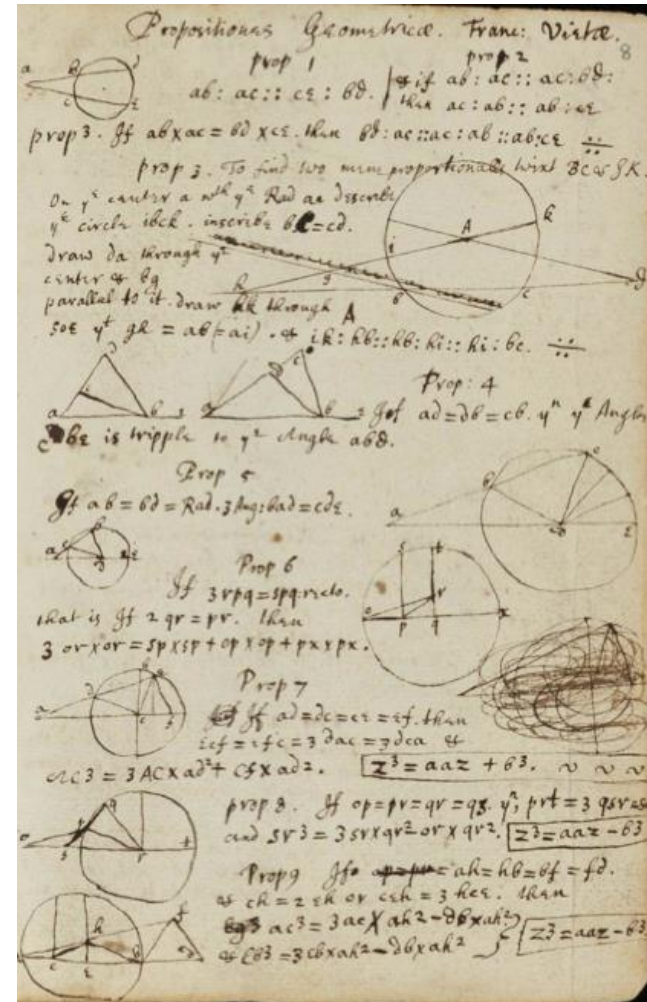 Propositiones Geometricæ. Franc: Vietæ.
8
prop 1
ab: ac:: ce: bd.
prop 2
& if ab: ac:: ac: bd:
then ac: ab:: ab: ce
prop 3. If ab x ac = bd x ce. then bd: ac :: ac: ab :: ab: ce
prop 3. To find two meane proportionalls twixt BC & gK.
On yᵉ center a wᵗʰ yᵉ Rad describe
yᵉ circle ibck. inscribe bc = cd.
draw da through yᵉ
center & bg
parallel to it. draw hk through A
soe yᵗ gh = ab (= ai). & ik: hb:: hb: hi:: hi: bc.
Prop: 4
If ad = db = cb. yⁿ yᵉ Angle
cbe is tripple to yᵉ Angle abd.
Prop 5
If ab = bd = Rad. 3 Ang: bad = cde.
Prop 6
If 3 rpq = spq. recto.
that is If 2 qr = pr. then
3 or x or = sp x sp + op x op + px x px.
Prop 7
If ad = dc = ce = ef. then
ecf = efc = 3 dac = 3 dca &
AC3 = 3 AC x ad² + Cf x ad2.
z³ = aaz + b³.
prop 8. If op = pr = qr = qs. yⁿ, prt = 3 qsr
and sr3 = 3 sr x qr2 or x qr2.
z3 = aaz - b3
Prop 9 If ah = hb = bf = fd.
& ch = 2 eh or ceh = 3 hce. then
ac³ = 3 ac x ah² - db x ah²
& cb³ = 3 cb x ah² - db x ah²
z3 = aaz - b3.